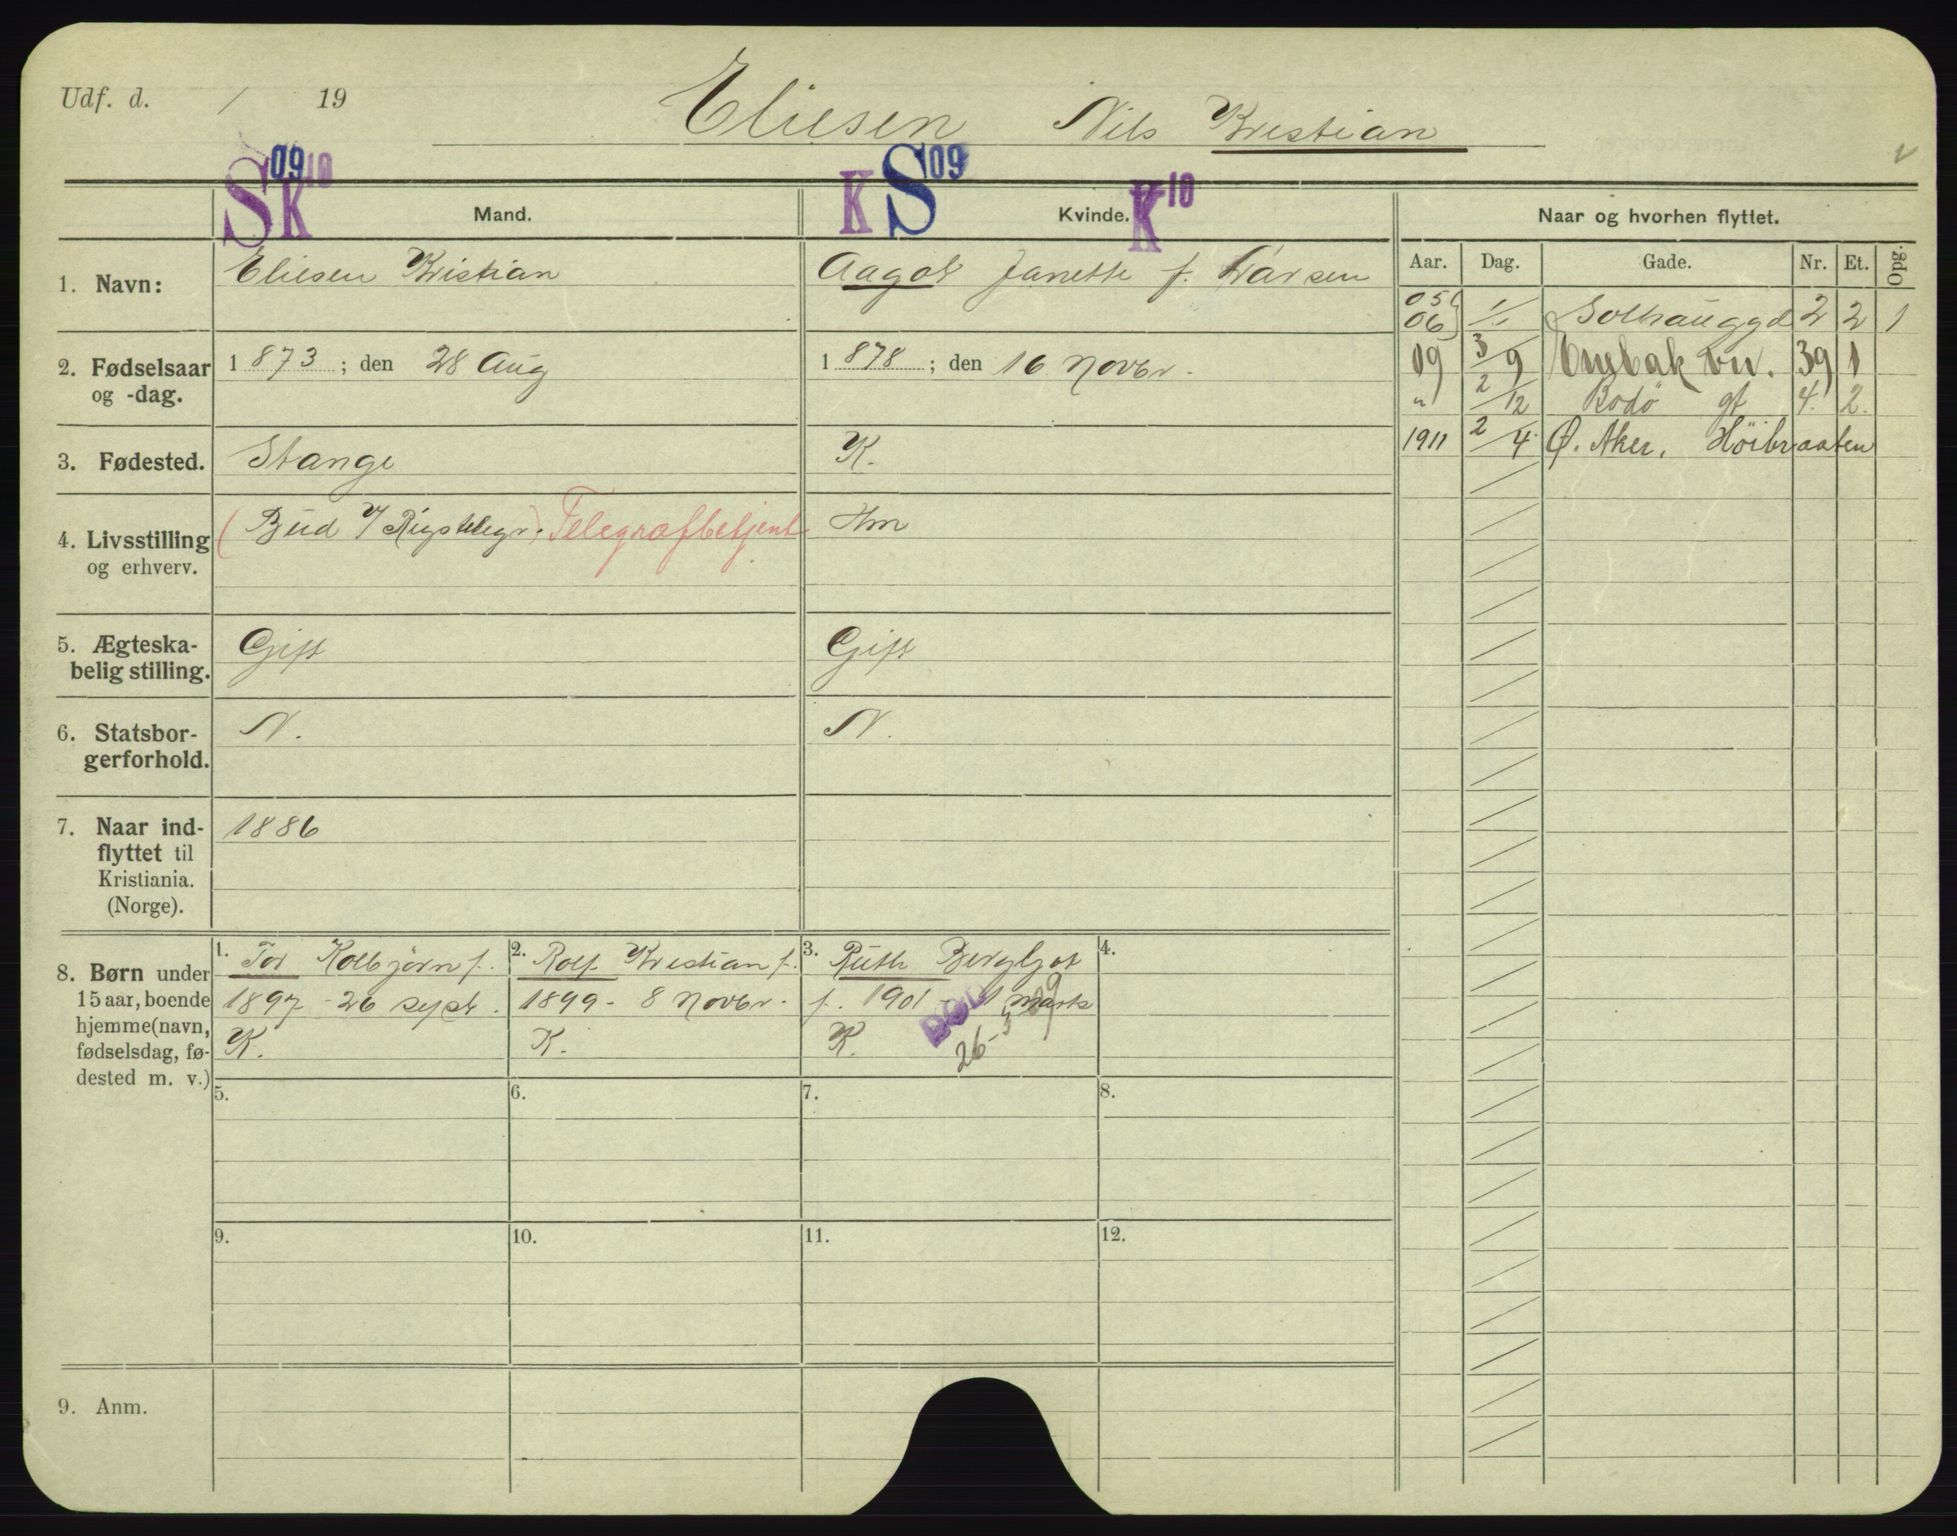 Udf. d. / 19
Eliesen Nils Kristian
S 09 K 10 K S 09 K 10
Mand. Kvinde. Naar og hvorhen flyttet.
Aar. Dag. Gade. Nr. Et. Opg.
1. Navn: Eliesen Kristian Aagot Janette f. Larsen
05 06 1/1 Solhauggd 2 2 1
2. Fødselsaar og -dag. 1873; den 28 Aug 1878; den 16 Novbr.
09 3/9 Enebak vn. 39 1
" 2/12 Bodø gt 4. 2.
1911 2/4 Ø. Aker, Høibraaten
3. Fødested. Stange K.
4. Livsstilling og erhverv. (Bud v/ Rigstelegr.) Telegrafbetjent Hm
5. Ægteska-
belig stilling. Gift Gift
6. Statsbor-
gerforhold. N. N.
7. Naar ind-
flyttet til
Kristiania.
(Norge). 1886
8. Børn under
15 aar, boende
hjemme (navn,
fødselsdag, fø-
dested m. v.)
1. Tor Kolbjörn f.
1897 - 26 sept.
K.
2. Rolf Kristian f.
1899 - 8 Novbr.
K.
3. Ruth Bergljot
f. 1901 - 1 marts
K.
DØD
26-3 09
4.
5. 6. 7. 8.
9. 10. 11. 12.
9. Anm.